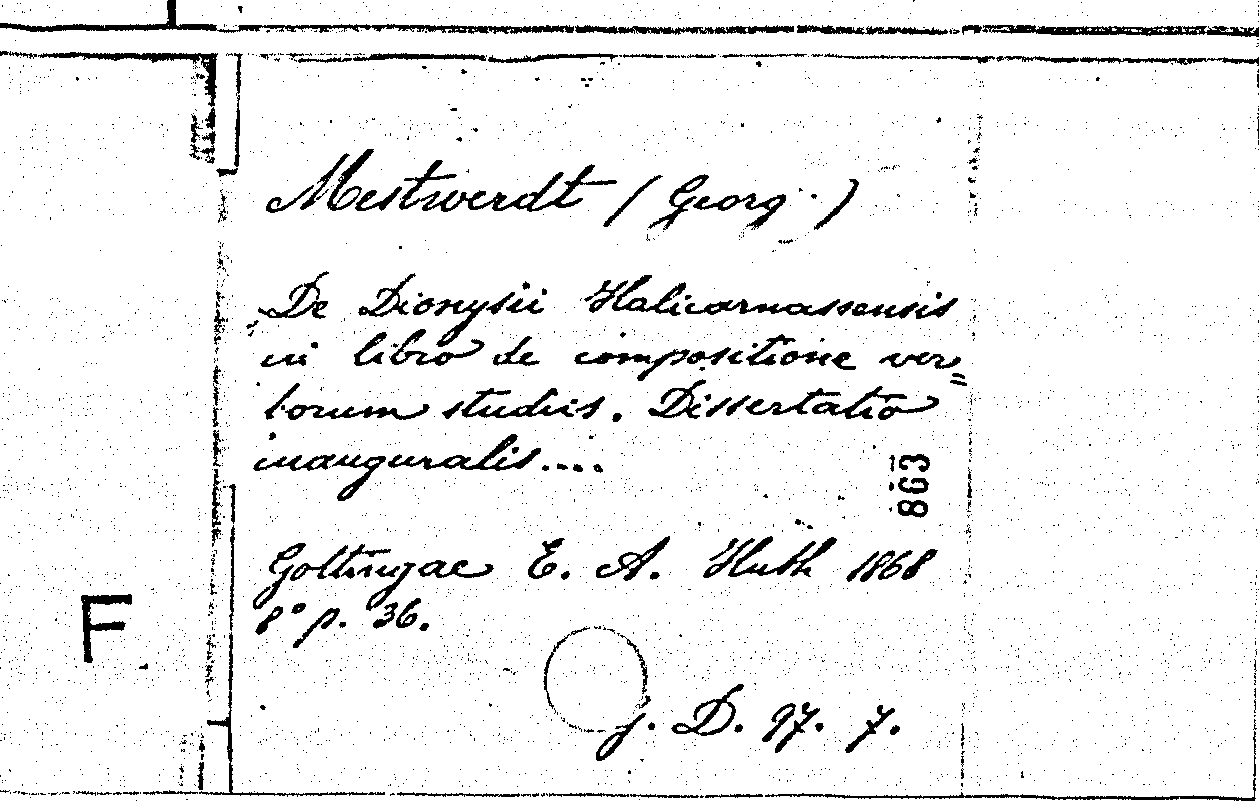 Mestwerdt (Georg)
De Dionysii Halicarnassensis
in libro de compositione ver=
borum studiis. Dissertatio
inauguralis....
863
Gottingae E. A. Huth 1868
8° p. 36.
F
g. D. 97. 7.